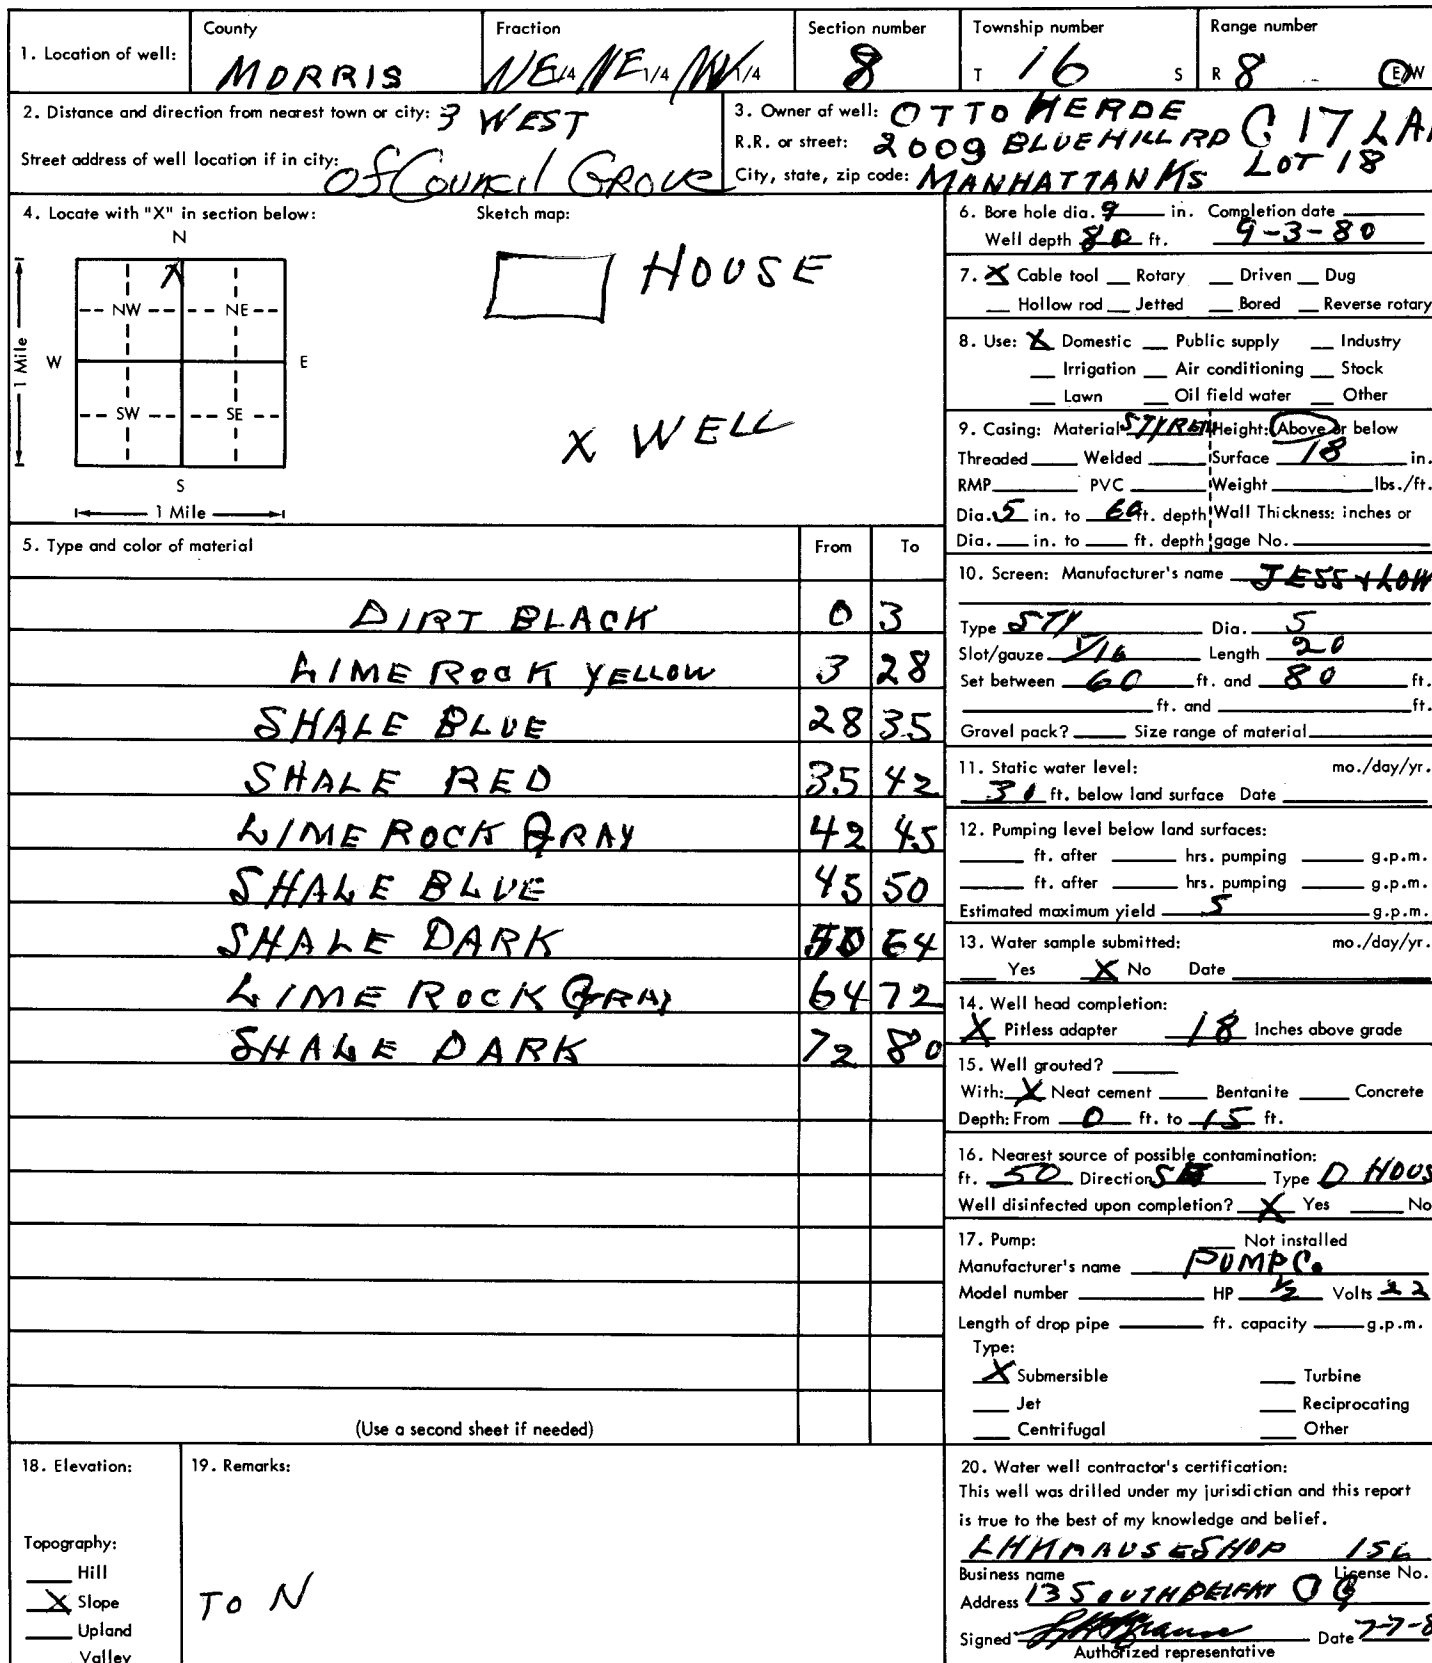 1. Location of well:
County
MORRIS
Fraction
NE 1/4 NE 1/4 NW 1/4
Section number
8
Township number
T 16 S
Range number
R 8 E/W
2. Distance and direction from nearest town or city: 3 WEST
Street address of well location if in city: Of Council Grove
3. Owner of well: OTTO HERDE
R.R. or street: 2009 BLUE HILL RD C 17 LA
City, state, zip code: MANHATTAN KS LOT 18
4. Locate with "X" in section below:
N
NW NE
W E
SW SE
S
1 Mile
1 Mile
X
Sketch map:
HOUSE
X WELL
5. Type and color of material From To
DIRT BLACK 0 3
LIME ROCK YELLOW 3 28
SHALE BLUE 28 35
SHALE RED 35 42
LIME ROCK GRAY 42 45
SHALE BLUE 45 50
SHALE DARK 50 64
LIME ROCK GRAY 64 72
SHALE DARK 72 80
(Use a second sheet if needed)
6. Bore hole dia. 9 in. Completion date
Well depth 80 ft. 9-3-80
7. X Cable tool Rotary Driven Dug
Hollow rod Jetted Bored Reverse rotary
8. Use: X Domestic Public supply Industry
Irrigation Air conditioning Stock
Lawn Oil field water Other
9. Casing: Material Height: Above or below
Threaded Welded Surface 18 in.
RMP PVC Weight lbs./ft.
Dia. 5 in. to 60 ft. depth Wall Thickness: inches or
Dia. in. to ft. depth gage No.
10. Screen: Manufacturer's name JESS & LOW
Type STY Dia. 5
Slot/gauze 1/16 Length 20
Set between 60 ft. and 80 ft.
ft. and ft.
Gravel pack? Size range of material
11. Static water level: mo./day/yr.
ft. below land surface Date
12. Pumping level below land surfaces:
ft. after hrs. pumping g.p.m.
ft. after hrs. pumping g.p.m.
Estimated maximum yield 5 g.p.m.
13. Water sample submitted: mo./day/yr.
Yes X No Date
14. Well head completion:
X Pitless adapter 18 Inches above grade
15. Well grouted?
With: X Neat cement Bentanite Concrete
Depth: From 0 ft. to 15 ft.
16. Nearest source of possible contamination:
ft. 50 Direction Type D HOUS
Well disinfected upon completion? X Yes No
17. Pump: Not installed
Manufacturer's name PUMP Co.
Model number HP 1/2 Volts 22
Length of drop pipe ft. capacity g.p.m.
Type:
X Submersible Turbine
Jet Reciprocating
Centrifugal Other
18. Elevation:
Topography:
Hill
X Slope
Upland
Valley
19. Remarks:
TO N
20. Water well contractor's certification:
This well was drilled under my jurisdiction and this report
is true to the best of my knowledge and belief.
LHKRAUSE SHOP 156
Business name License No.
Address 13 SOUTH CG
Signed Date 7-7-8
Authorized representative